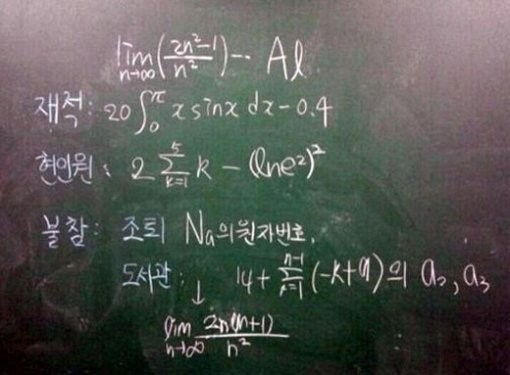 lim n→∞ (2n²-1 / n²) -- Al
재적: 20 ∫₀^π x sinx dx - 0.4
현인원: 2 Σ_{k=1}^{5} k - (lne²)²
불참: 조퇴 Na의원자번호,
도서관: 14 + Σ^{n-1} (-k+9)의 a₂, a₃
↓
lim n→∞ 2n(n+1) / n²